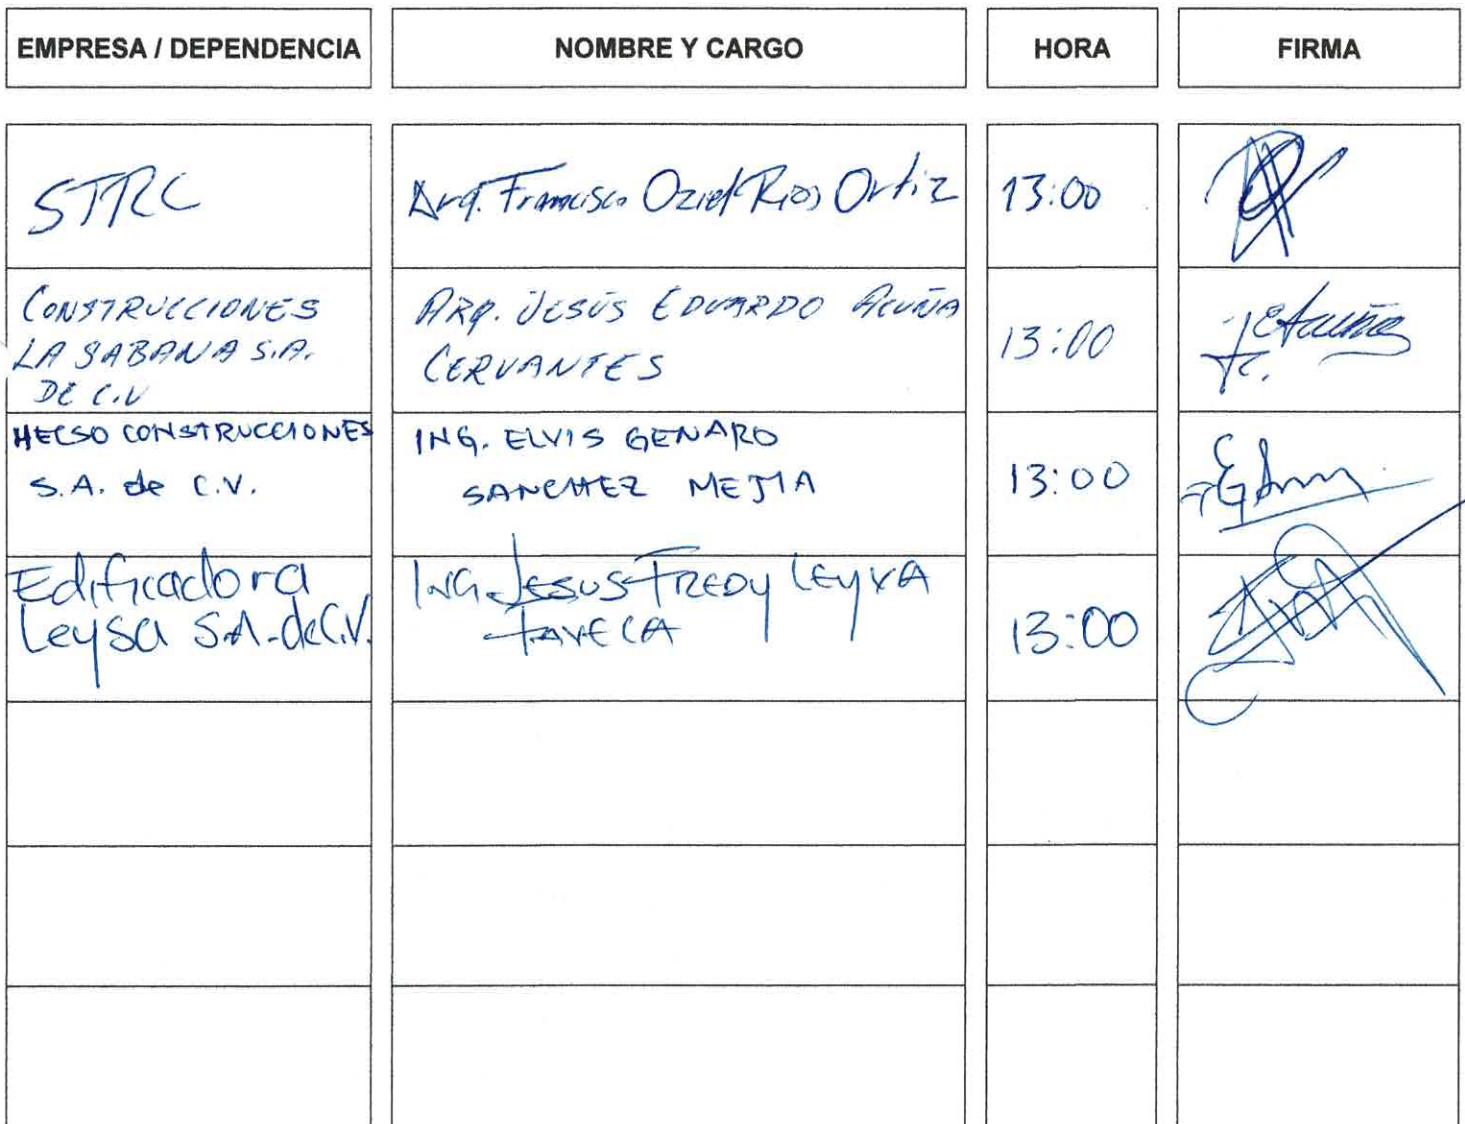 EMPRESA / DEPENDENCIA NOMBRE Y CARGO HORA FIRMA
STRC Arq. Francisco Oziel Rios Ortiz 13:00
CONSTRUCCIONES
LA SABANA S.A.
DE C.V
ARQ. JESÚS EDUARDO ACUÑA
CERVANTES
13:00
HECSO CONSTRUCCIONES
S.A. de C.V.
ING. ELVIS GENARO
SANCHEZ MEJIA
13:00
Edificadora
Leysa S.A. de C.V.
ING. JESUS FREDY LEYVA
13:00